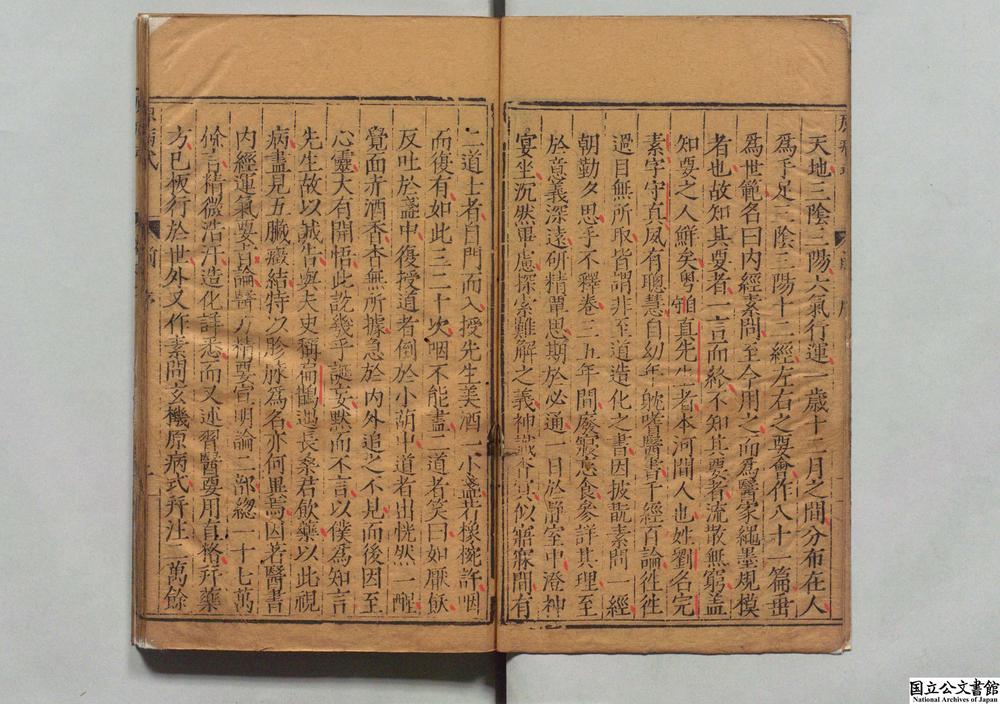 天地三陰三陽六氣行運一歲十二月之間分布在人
爲手足三陰三陽十二經左右之要會作八十一篇垂
爲世範名曰內經素問至今用之而爲醫家繩墨規模
者也故知其要者一言而終不知其要者流散無窮蓋
知要之人鮮矣粤守直先生者本河間人也姓劉名完
素字守真夙有聰慧自幼年耽嗜醫書千經百論徃徃
過目無所取皆謂非至道造化之書因披翫素問一經
朝勤夕思手不釋卷三五年間廢寢忘食參詳其理至
於意義深遠研精覃思期於必通一日於靜室中澄神
宴坐沉然畢慮探索難解之義神識杳冥似寤寐間有
二道士者自門而入授先生美酒一小盞若椽椀許咽
而復有如此三二十次咽不能盡二道者笑曰如厭飲
反吐於盞中復授道者倒於小葫中道者出恍然一醒
覺面赤酒香杳無所據急於內外追之不見而後因至
心靈大有開悟此說幾乎誕妄默而不言以僕爲知言
先生故以誠告與夫史稱扁鵲遇長桑君飲藥以此視
病盡見五臟癥結特以胗脉爲名亦何異焉因著醫書
內經運氣要旨論醫方精要宣明論二部總一十七萬
餘言精微浩汗造化詳悉而又述習醫要用直格幷藥
方已板行於世外又作素問玄機原病式幷注二萬餘
原病式
序
国立公文書館
National Archives of Japan